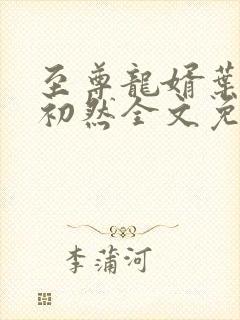 至尊龍婿葉
初然全文免
李蒲河